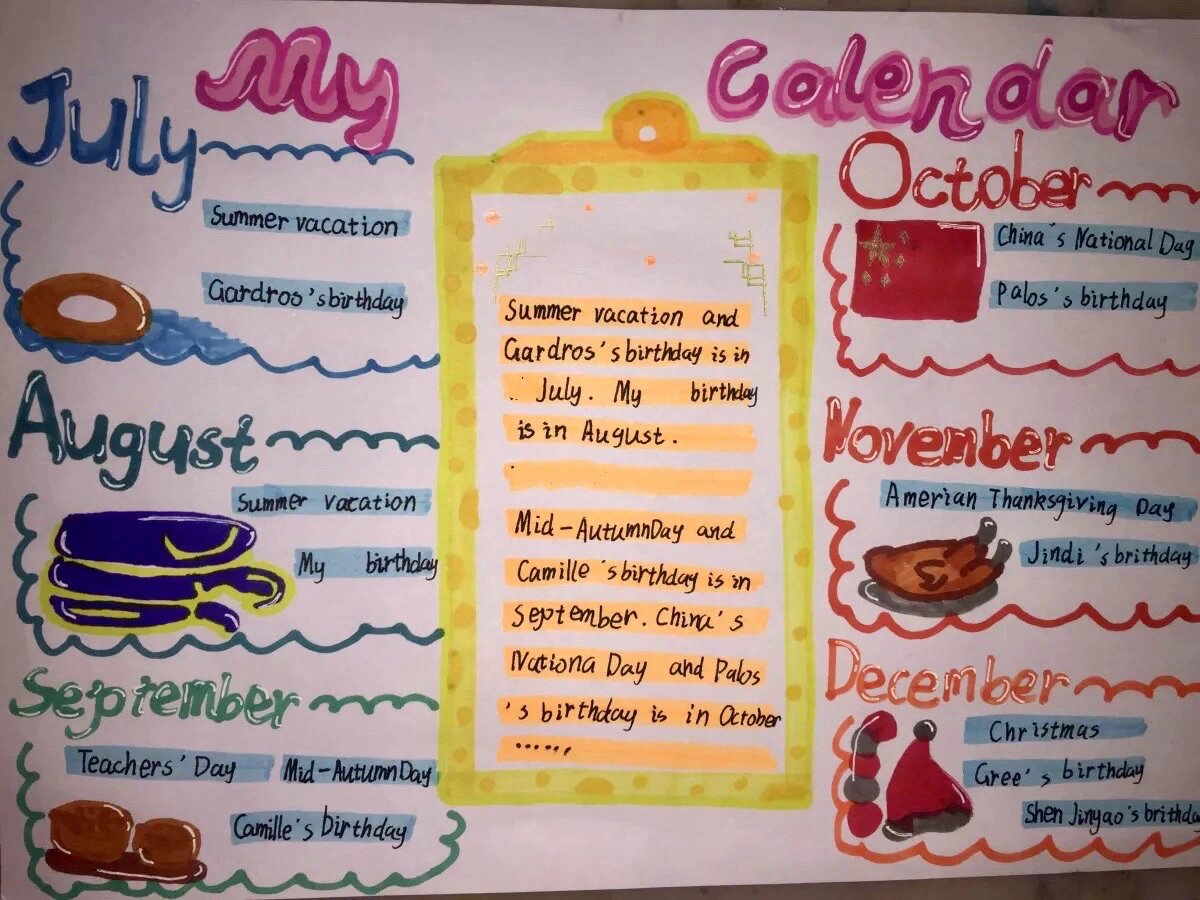 My Calendar
July
Summer vacation
Gardros's birthday
August
Summer vacation
My birthday
September
Teachers' Day Mid-AutumnDay
Camille's birthday
Summer vacation and
Gardros's birthday is in
. July. My birthday
is in August.
Mid-AutumnDay and
Camille's birthday is in
September. China's
Nationa Day and Palos
's birthday is in October
······
October
China's National Day
Palos's birthday
November
Amerian Thanksgiving Day
Jindi's brithday
December
Christmas
Gree's birthday
Shen Jinyao's brithda